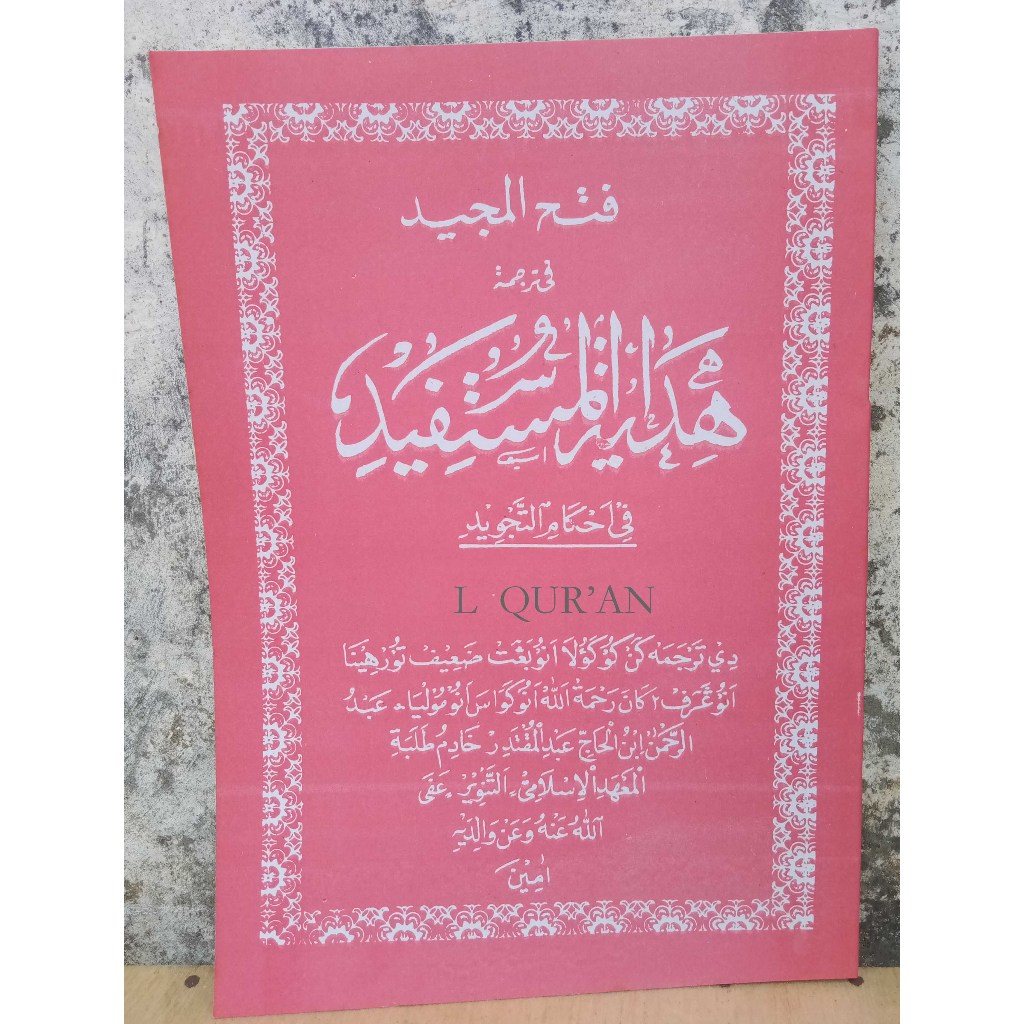 فتح المجيد
في ترجمة
هِدَايَةُ الْمُسْتَفِيْدِ
فِيْ اَحْكَامِ التَّجْوِيْدِ
L QUR'AN
دِيْ تَرْجَمَه كَنْ كَوْلَا اَنُوْ بَڠَتْ ضَعِيْف تُوْر هِيْنَا
اَنُوْ ڠَرَڤ٢ كَانَ رَحْمَةْ اَللهْ اَنُوْ كَوَاسَ اَنُوْ مُوْلْيَاء عَبْدُ
الرَّحْمٰنْ اِبْنُ الْحَاجّ عَبْدِ الْمُقْتَدِرْ خَادِمُ طَلَبَةِ
الْمَعْهَدِ الْاِسْلَامِيْ، اَلتَّنْوِيْرْ، عَفَى
اَللهُ عَنْهُ وَعَنْ وَالِدَيْهِ
اٰمِيْنَ